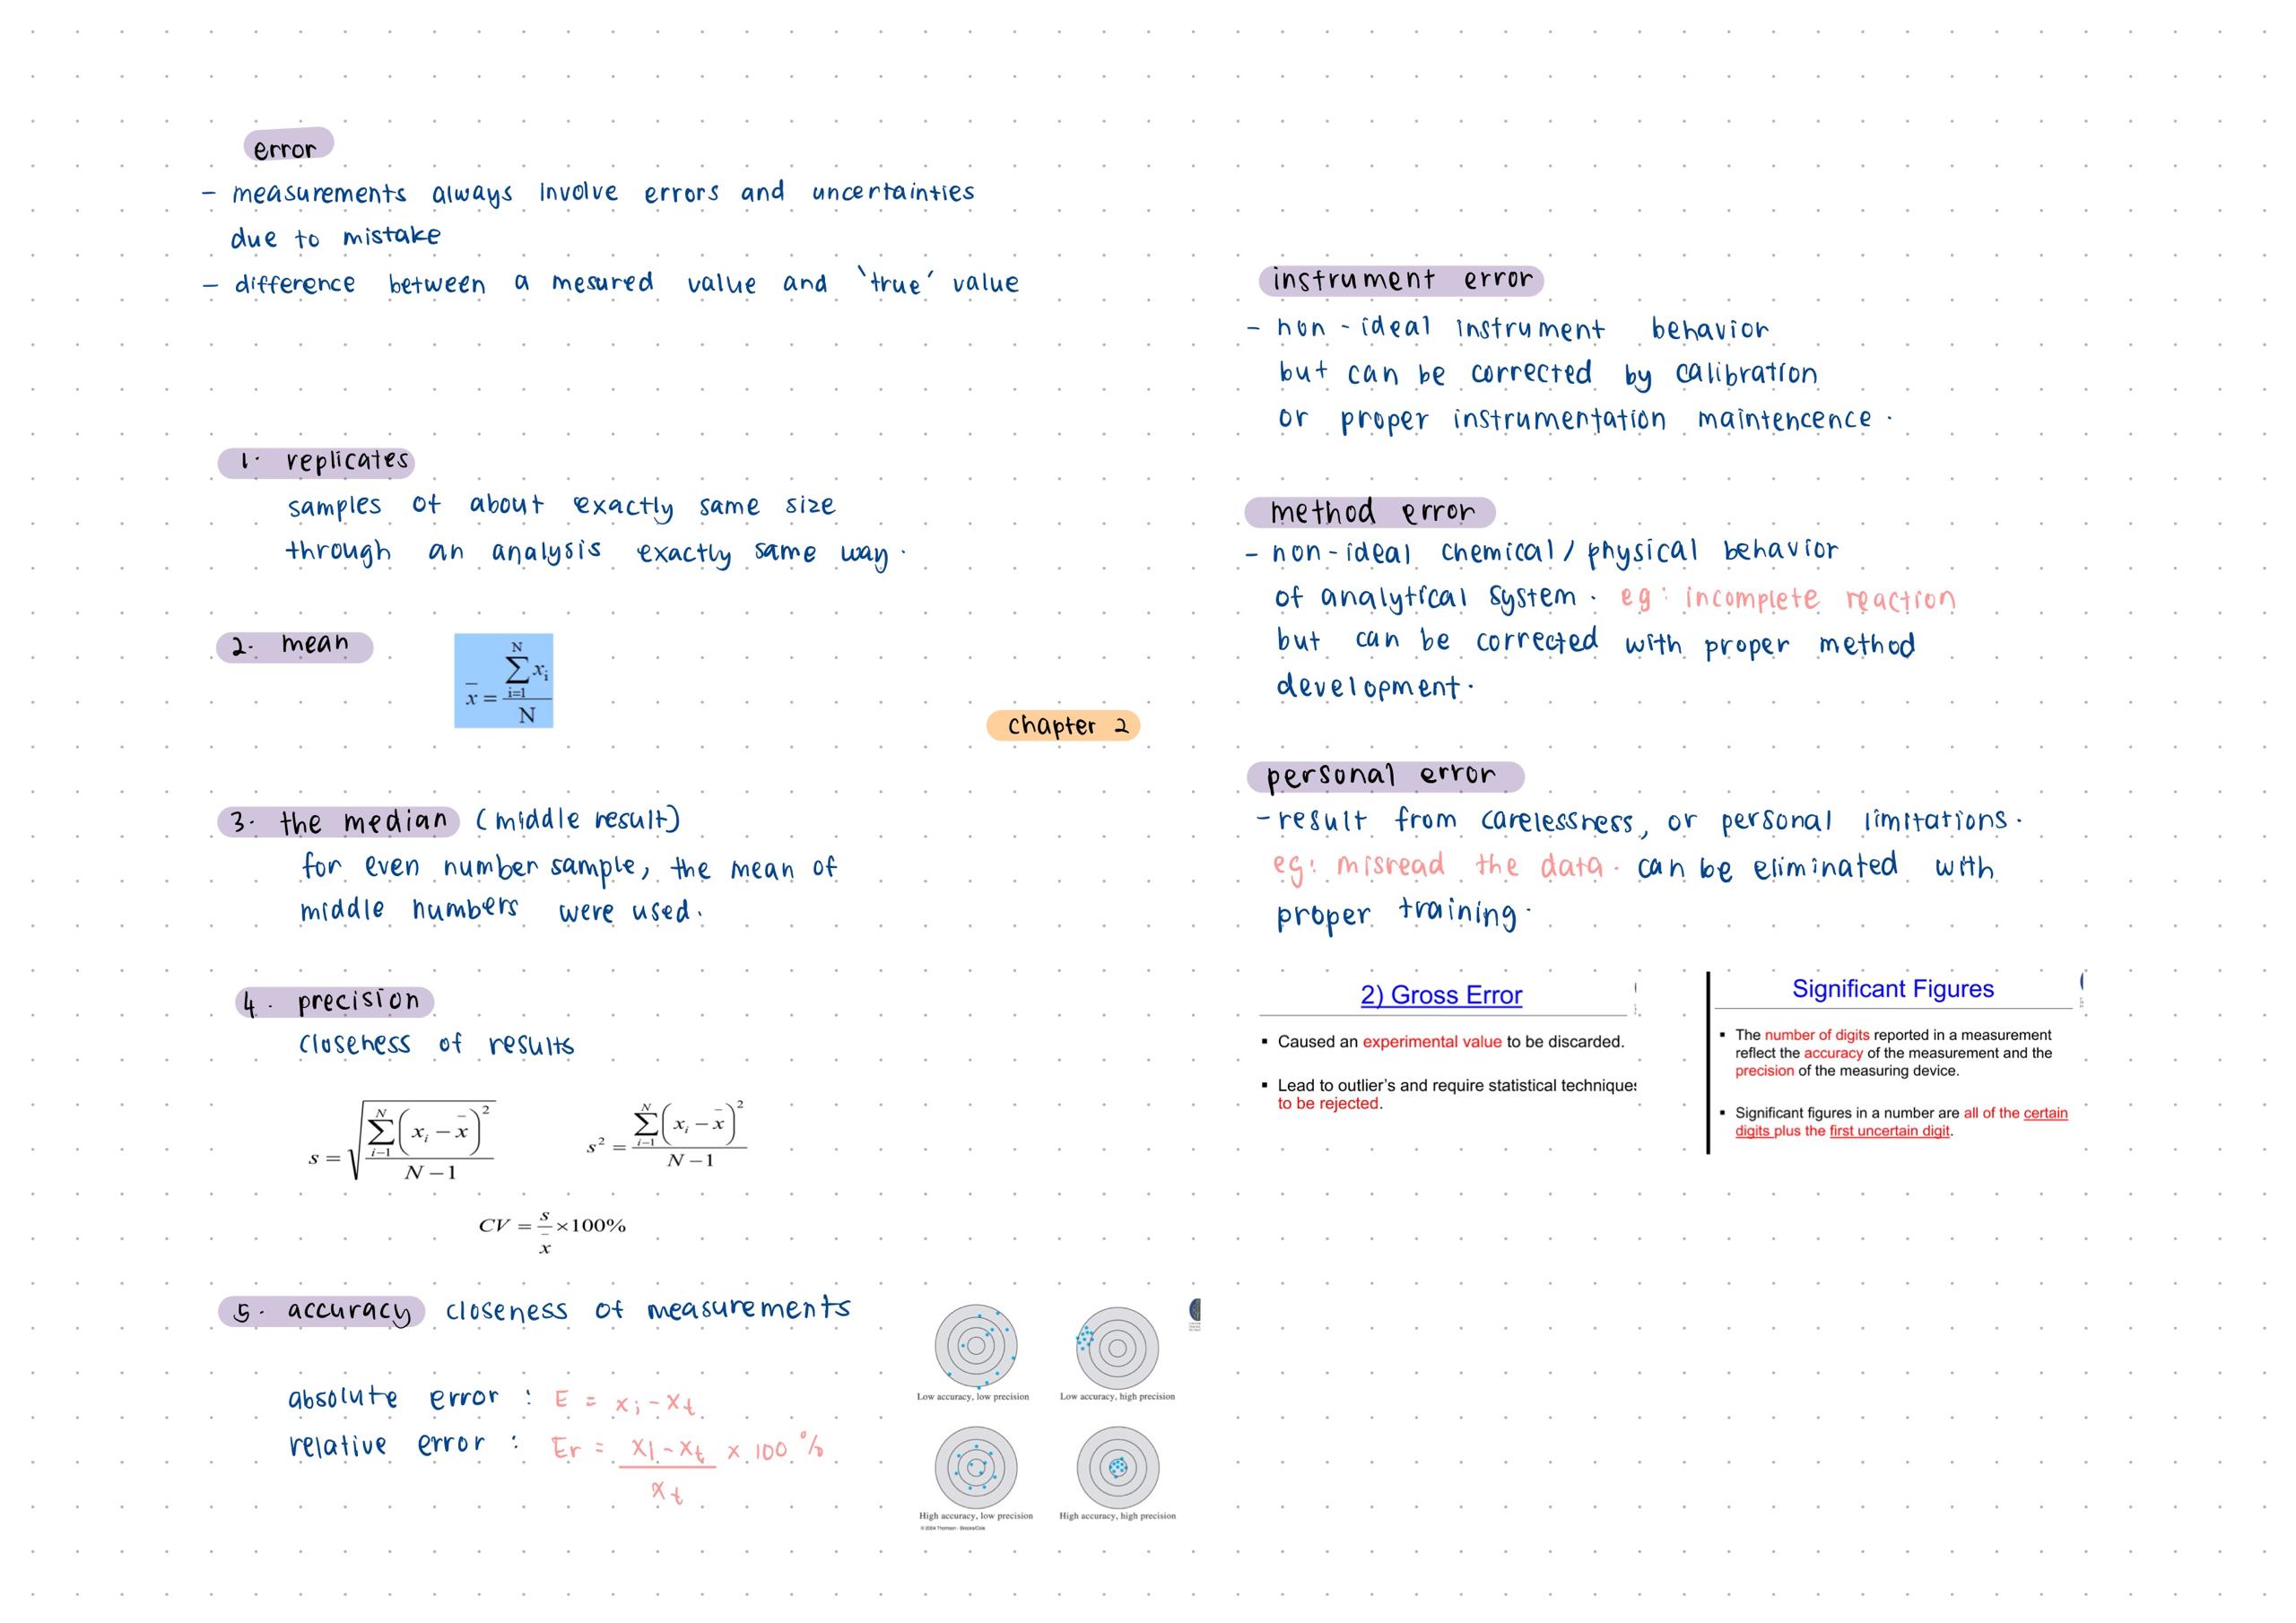 error
- measurements always involve errors and uncertainties
due to mistake
- difference between a mesured value and 'true' value
1. replicates
samples of about exactly same size
through an analysis exactly same way.
2. mean
x̄ = ∑_{i=1}^{N} x_i / N
3. the median (middle result)
for even number sample, the mean of
middle numbers were used.
4. precision
closeness of results
s = √(∑_{i-1}^{N} (x_i - x̄)² / N-1)
s² = ∑_{i-1}^{N} (x_i - x̄)² / N-1
CV = s/x̄ × 100%
5. accuracy closeness of measurements
absolute error : E = xi - xt
relative error : Er = xi - xt / xt x 100 %
Low accuracy, low precision
Low accuracy, high precision
High accuracy, low precision
High accuracy, high precision
© 2004 Thomson - Brooks/Cole
chapter 2
instrument error
- non-ideal instrument behavior
but can be corrected by calibration
or proper instrumentation maintencence.
method error
- non-ideal chemical / physical behavior
of analytical system. eg: incomplete reaction
but can be corrected with proper method
development.
personal error
- result from carelessness, or personal limitations.
eg: misread the data. can be eliminated with
proper training.
2) Gross Error
▪ Caused an experimental value to be discarded.
▪ Lead to outlier's and require statistical techniques
to be rejected.
Significant Figures
▪ The number of digits reported in a measurement
reflect the accuracy of the measurement and the
precision of the measuring device.
▪ Significant figures in a number are all of the certain
digits plus the first uncertain digit.